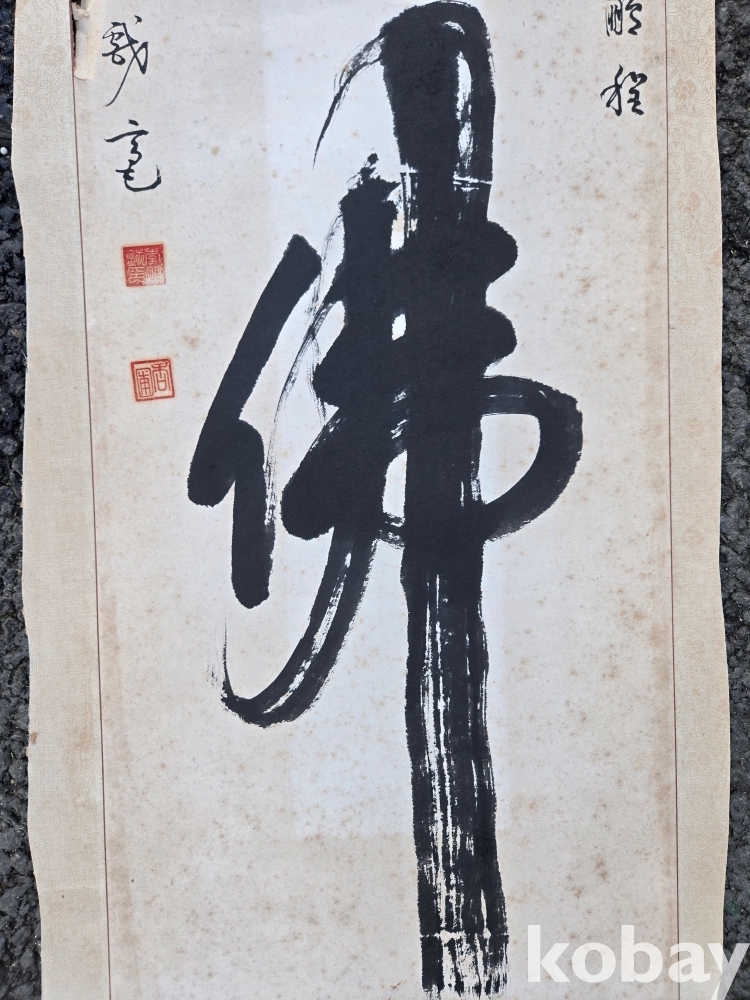 鵬程
佛
戲毫
kobay